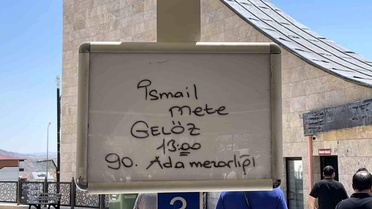 İsmail
Mete
GELÖZ
13:00
90. Ada mezarlığı
2